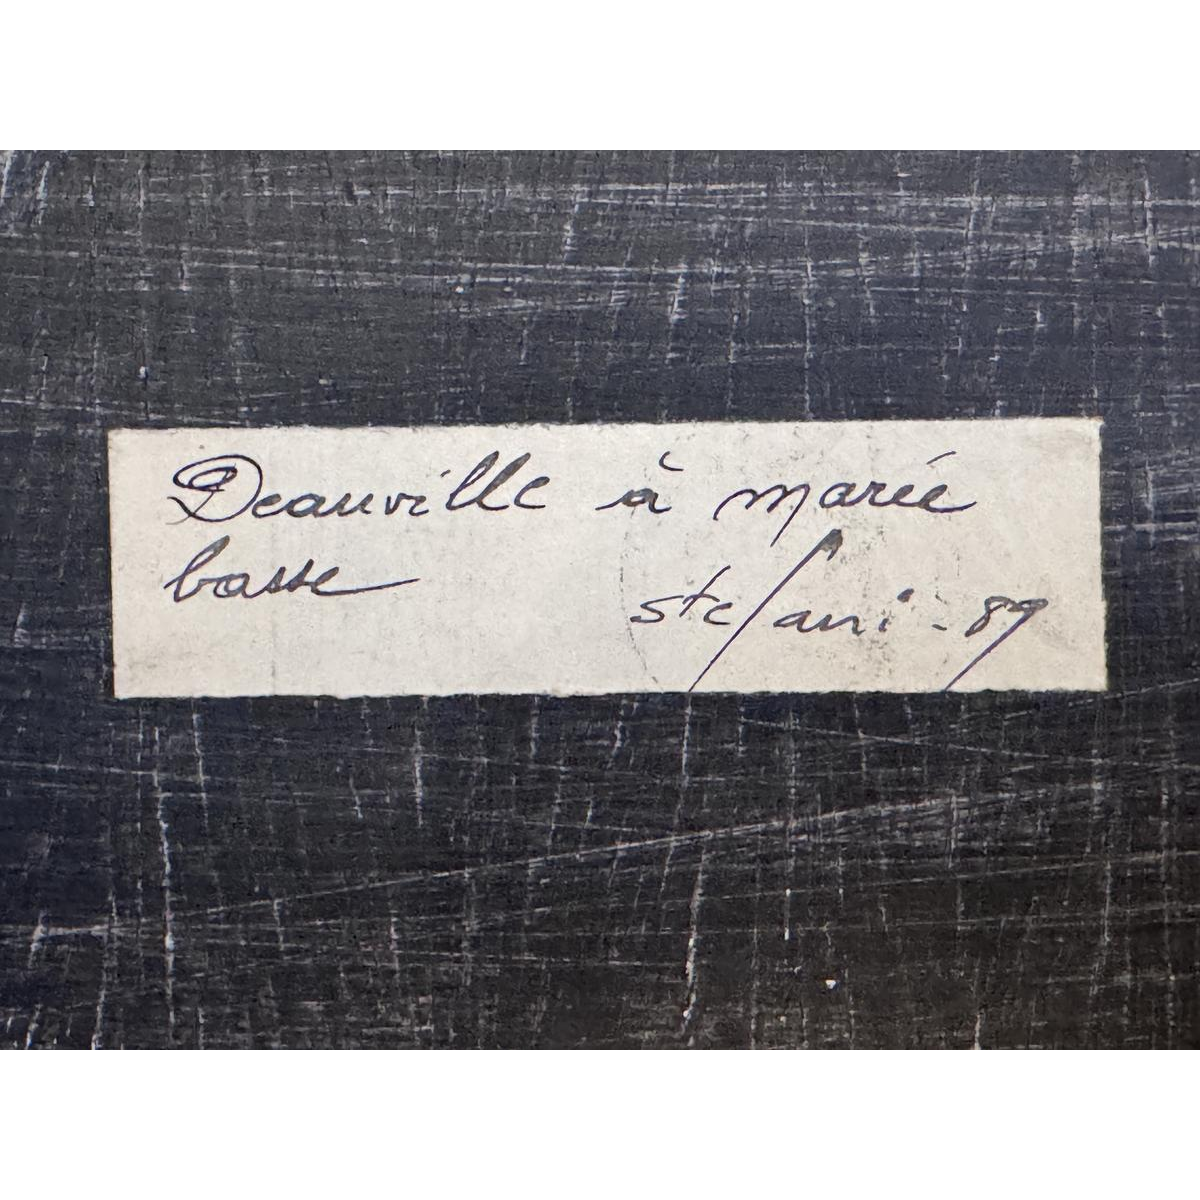 Deauville à marée
basse
stefani - 89